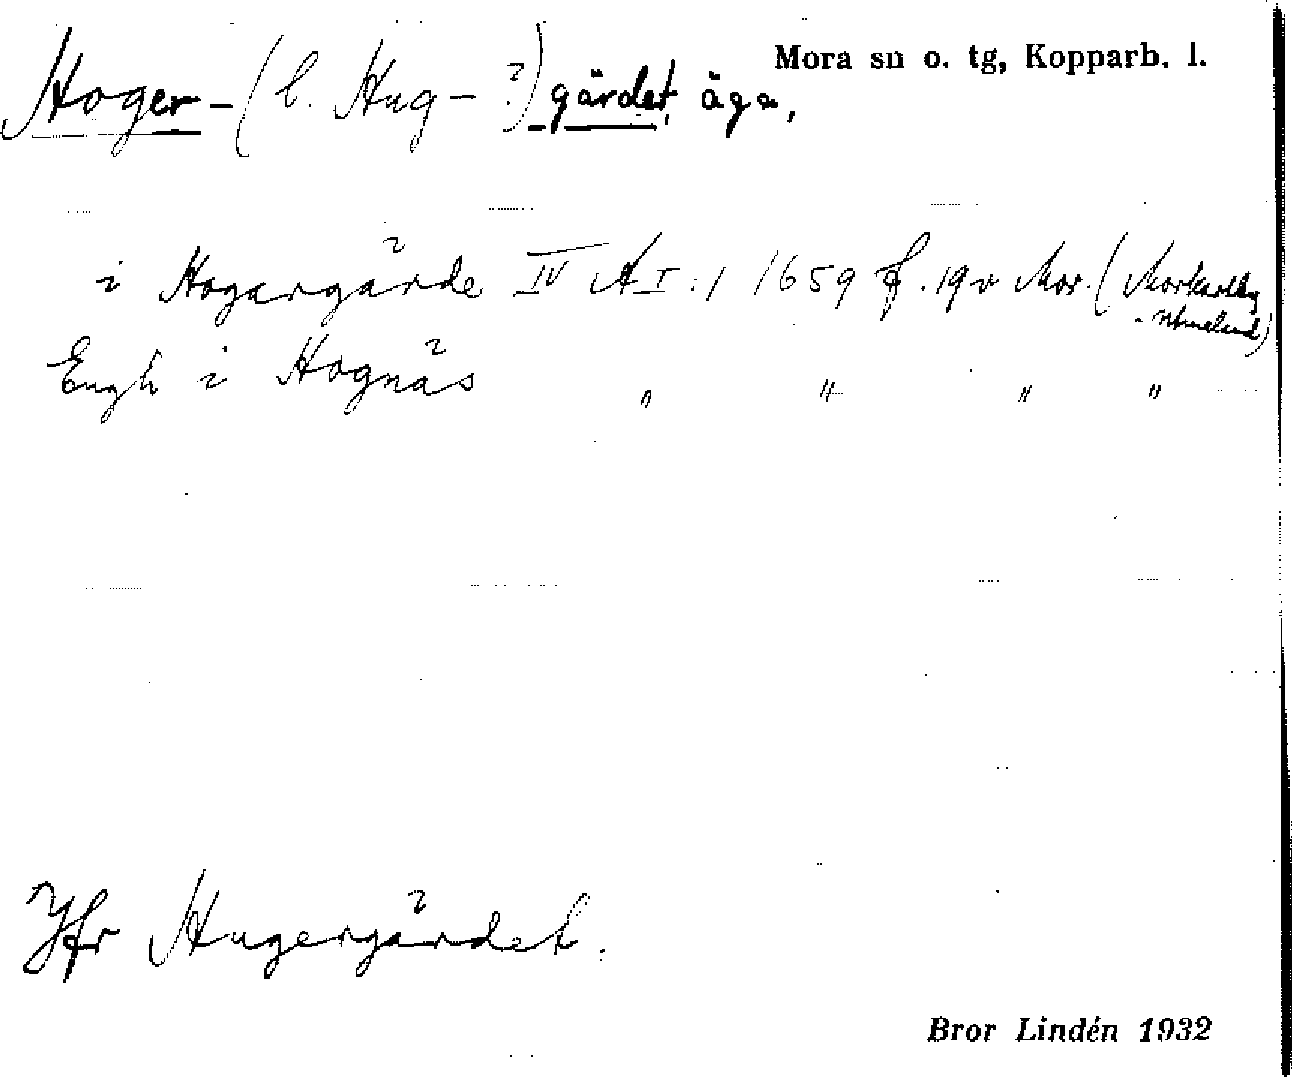 Mora sn o. tg, Kopparb. l.
Hoger-(l. Hug-?)gärdet, äga,
i Hogargärde IV A I:1 1659 f. 19v Mor. (Morkarlby
Engh i Hognäs " " " "
Jfr Hugergärdet.
Bror Lindén 1932